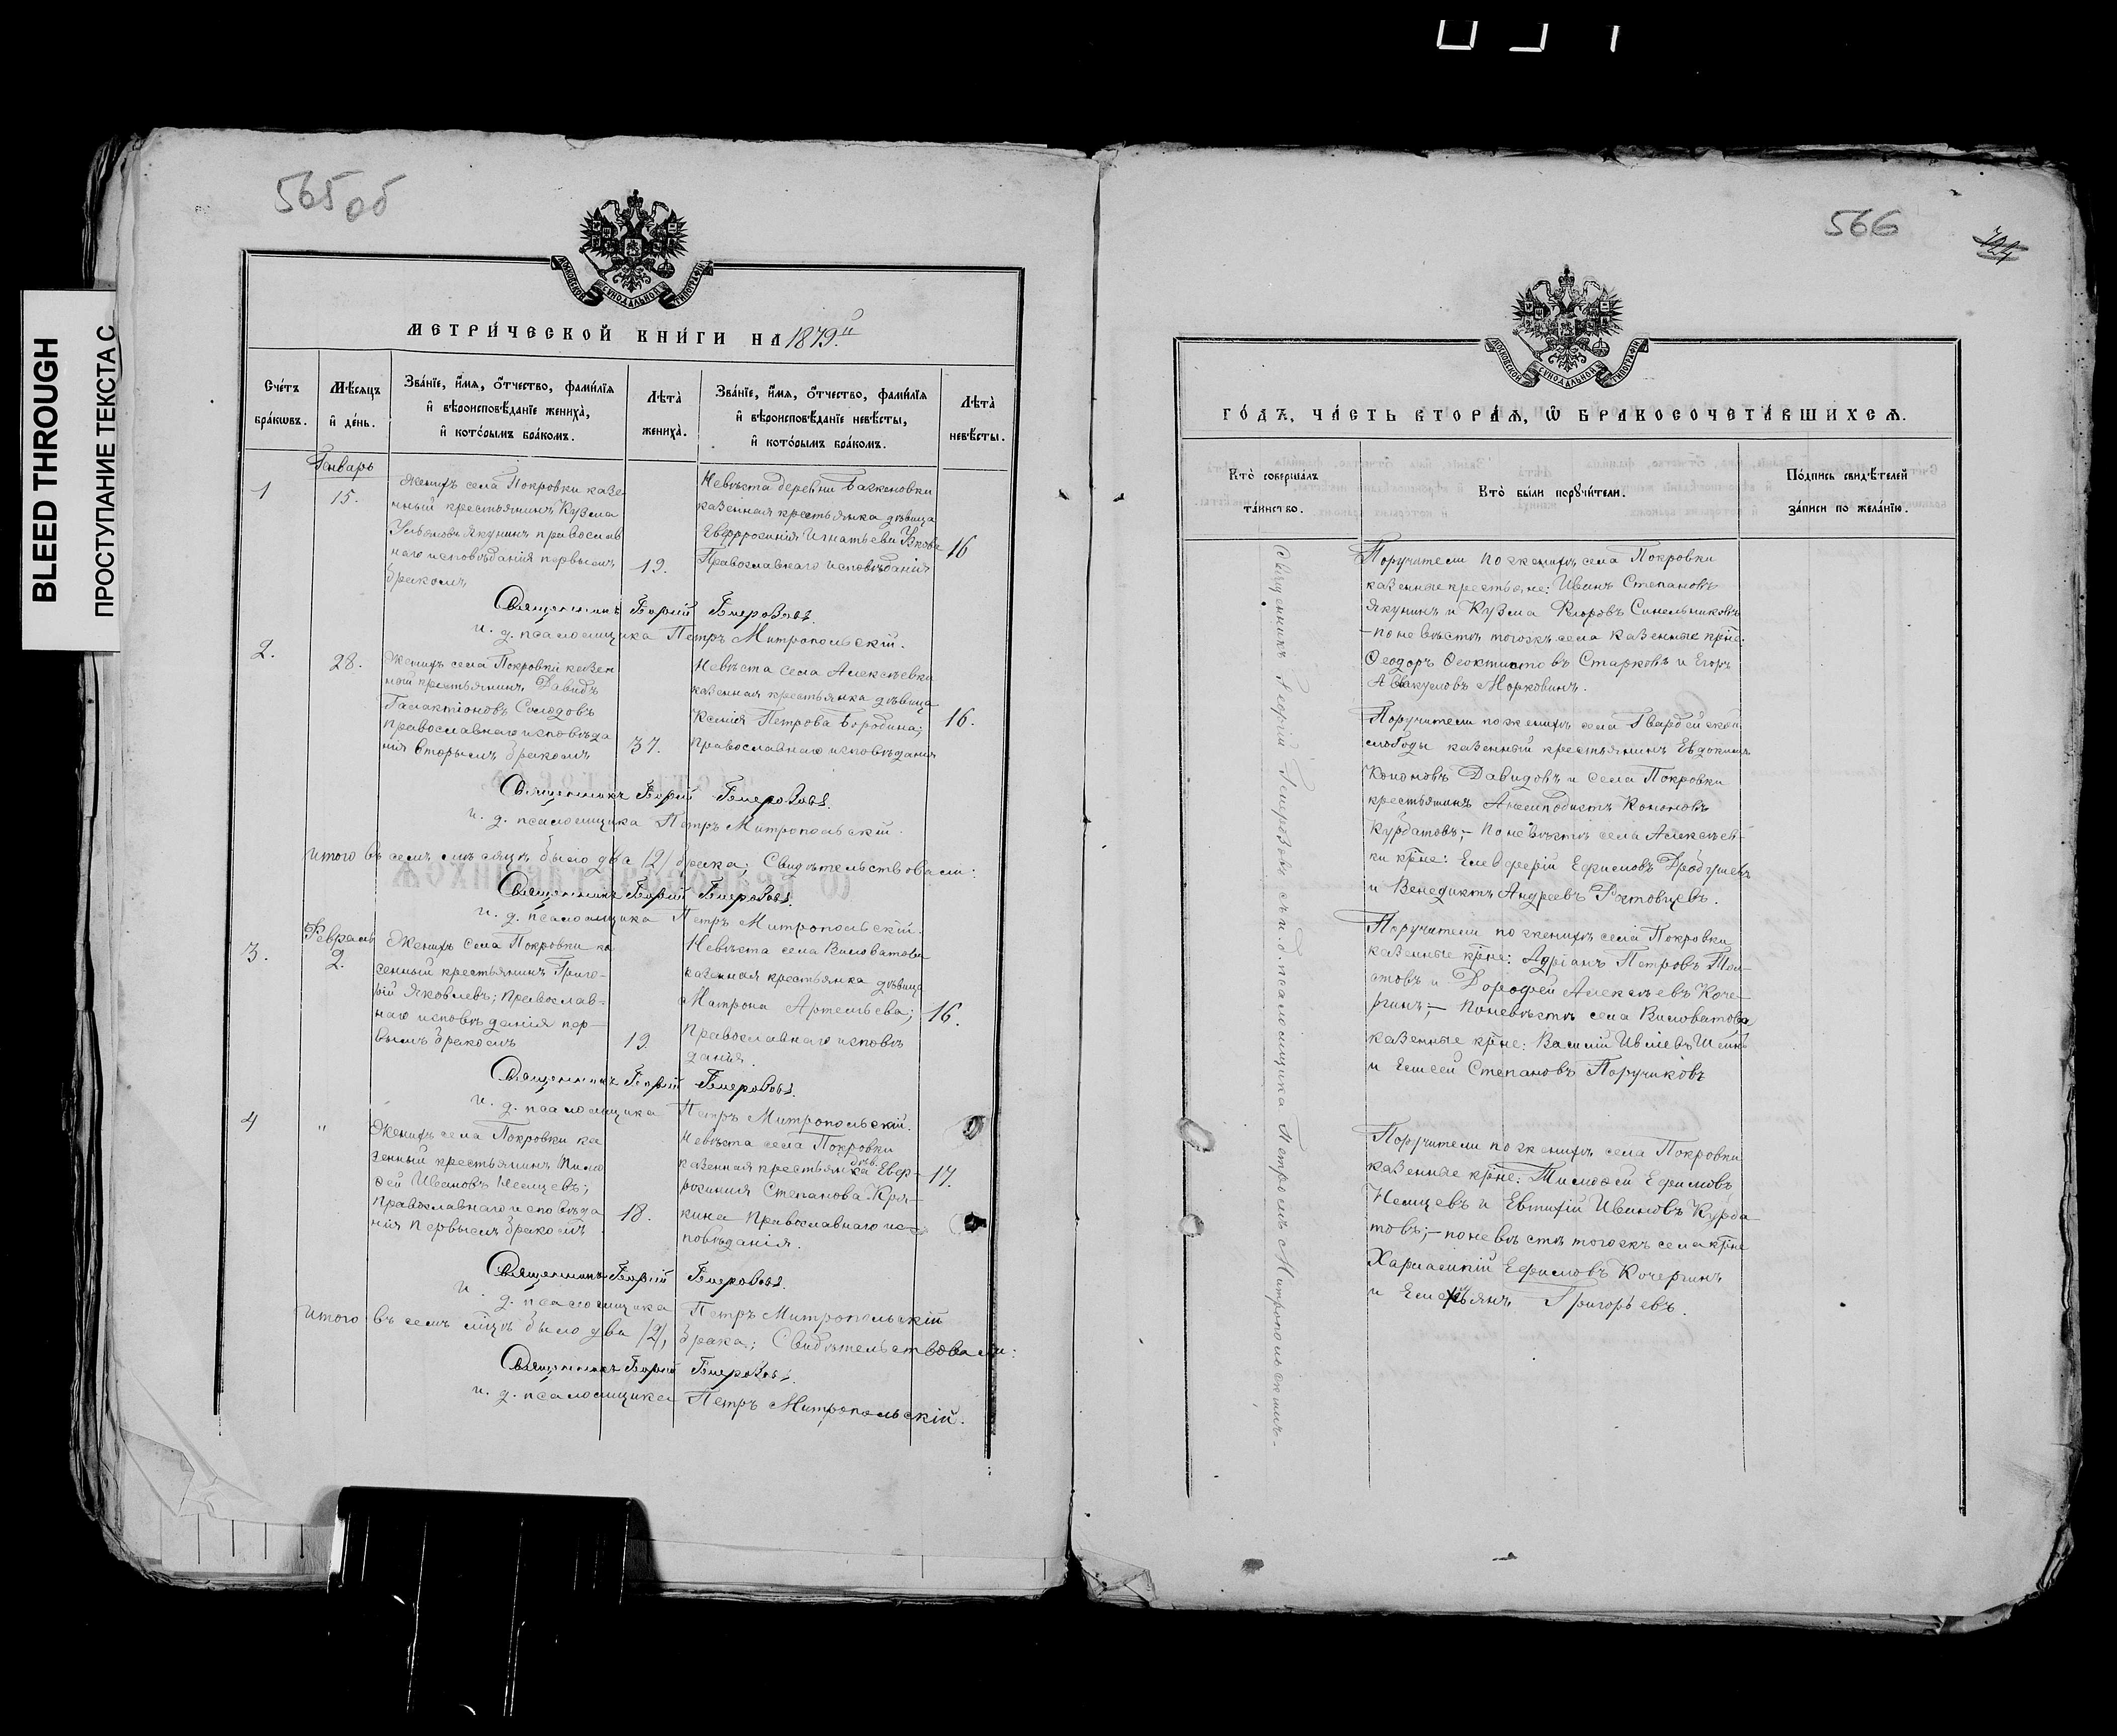 BLEED THROUGH
ПРОСТУПАНИЕ ТЕКСТА С
565об
МОСКОВСКОЙ СУНОДАЛЬНОЙ ТИПОГРАФІИ
МЕТРИ́ЧЕСКОЙ КНИ́ГИ НА 1879.й
Сче́тъ бра́кѡвъ.
Мѣ́сяцъ и҆ де́нь.
Зва́нїе, и҆́мѧ, ѻ҆́тчество, фами́лїѧ и҆ вѣроисповѣ́данїе жениха̀, и҆ кото́рымъ бра́комъ.
Лѣ́та̀ жениха̀.
Зва́нїе, и҆́мѧ, ѻ҆́тчество, фами́лїѧ и҆ вѣроисповѣ́данїе невѣ́сты, и҆ кото́рымъ бра́комъ.
Лѣ́та̀ невѣ́сты.
1
Генварь
15.
Женихъ села Покровки казе-
нный крестьянинъ Кузма
Якунинъ православ
наго исповѣданія первымъ
бракомъ
19.
Невѣста деревни
казенная крестьянка дѣвица
Евфросинія Игнатьева
Православнаго исповѣданія
16
Священникъ Георгій
и. д. псаломщика Петръ Митропольскій.
2.
28.
Женихъ села Покровки казен
ной крестьянинъ Давидъ
Галактіоновъ Солодовъ
Православнаго исповѣда
нія вторымъ бракомъ
37.
Невѣста села Алексѣевки
казенная крестьянка дѣвица
Ксенія Петрова Бородина;
Православнаго исповѣданія
16.
Священникъ Георгій
и. д. псаломщика Петръ Митропольскій.
Итого въ семъ мѣсяцѣ было два /2/ брака; Свидѣтельствовали:
Священникъ Георгій
и. д. псаломщика Петръ Митропольскій.
3.
Февраль
2.
Женихъ села Покровки ка
зенный крестьянинъ Григо-
рій Яковлевъ; Православ-
наго исповѣданія пер-
вымъ бракомъ
19.
Невѣста села Виловатова
казенная крестьянка дѣвица
Матрона Артемьева;
Православнаго исповѣ
данія.
16.
Священникъ Георгій
и. д. псаломщика Петръ Митропольскій.
4
"
Женихъ села Покровки ка
зенный крестьянинъ Тимо
фей Ивановъ Немцевъ;
Православнаго исповѣда
нія первымъ бракомъ.
18.
Невѣста села Покровки
дѣв.
казенная крестьянка Евфр-
росинія Степанова
кина Православнаго ис-
повѣданія.
17.
Священникъ Георгій
и. д. псаломщика Петръ Митропольскій
Итого въ семъ мцѣ было два /2/, брака; Свидѣтельствовали:
Священникъ Георгій
и. д. псаломщика Петръ Митропольскій.
566
МОСКОВСКОЙ СУНОДАЛЬНОЙ ТИПОГРАФІИ
ГО́ДЪ, ЧА́СТЬ ВТОРА́Ѧ, Ѽ БРАКОСОЧЕТА́ВШИХСѦ.
Кто̀ соверша́лъ та́инство.
Кто̀ бы́ли порꙋчи́тели.
По́дпись свидѣ́телей за́писи по жела́нїю.
Священникъ Георгій съ и. д. псаломщика Петромъ Митропольскимъ.
Поручители по женихѣ села Покровки
казенные крестьяне: Иванъ Степановъ
Якунинъ и Кузма Синельниковъ
-по невѣстѣ тогожъ села казенные крне:
Феодоръ Феоктистовъ Старковъ и Егоръ
Аввакумовъ Морковинъ.
Поручители по женихѣ села Гвардейской
слободы казенный крестьянинъ Евдокимъ
Кононовъ Давидовъ и села Покровки
крестьянинъ Анемподистъ Кононовъ
Курбатовъ; - По невѣстѣ села Алексѣев-
ки крне: Елевферій Ефимовъ
и Венедиктъ Андреевъ Ростовцевъ.
Поручители по женихѣ села Покровки
казенные крне: Адріанъ Петровъ
и Дорофей Алексѣевъ Коче-
ргинъ; - По невѣстѣ села Виловатова
казенные крне: Василій
и Елисей Степановъ Поручиковъ
Поручители по женихѣ села Покровки
казенные крне: Тимофей Ефимовъ
Немцевъ и Евтихій Ивановъ Курба-
товъ; - по невѣстѣ тогожъ села крне
Харлампій Ефимовъ Кочергинъ
и Емельянъ Григорьевъ.